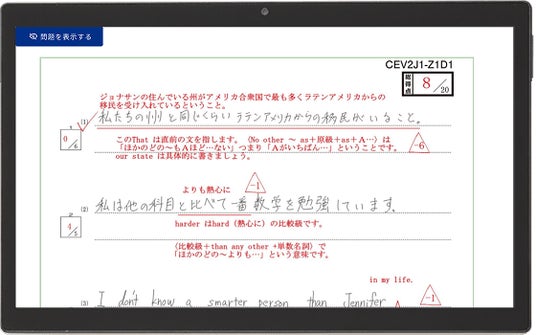 問題を表示する
CEV2J1-Z1D1
総得点 8/20
ジョナサンの住んでいる州がアメリカ合衆国で最も多くラテンアメリカからの
移民を受け入れているということ。
(1) 私たちの州と同じくらいラテンアメリカからの移民がいること。
1 0/6
このThat は直前の文を指します。〈No other ~ as+原級+as+A…〉は
「ほかのどの~もAほど…ない」つまり「Aがいちばん…」ということです。
our state は具体的に書きましょう。
-6
よりも熱心に
-1
(2) 私は他の科目と比べて一番数学を勉強しています。
2 4/5
harder はhard（熱心に）の比較級です。
〈比較級+than any other +単数名詞〉で
「ほかのどの~よりも…」という意味です。
in my life.
(3) I don't know a smarter person than Jennifer
-1